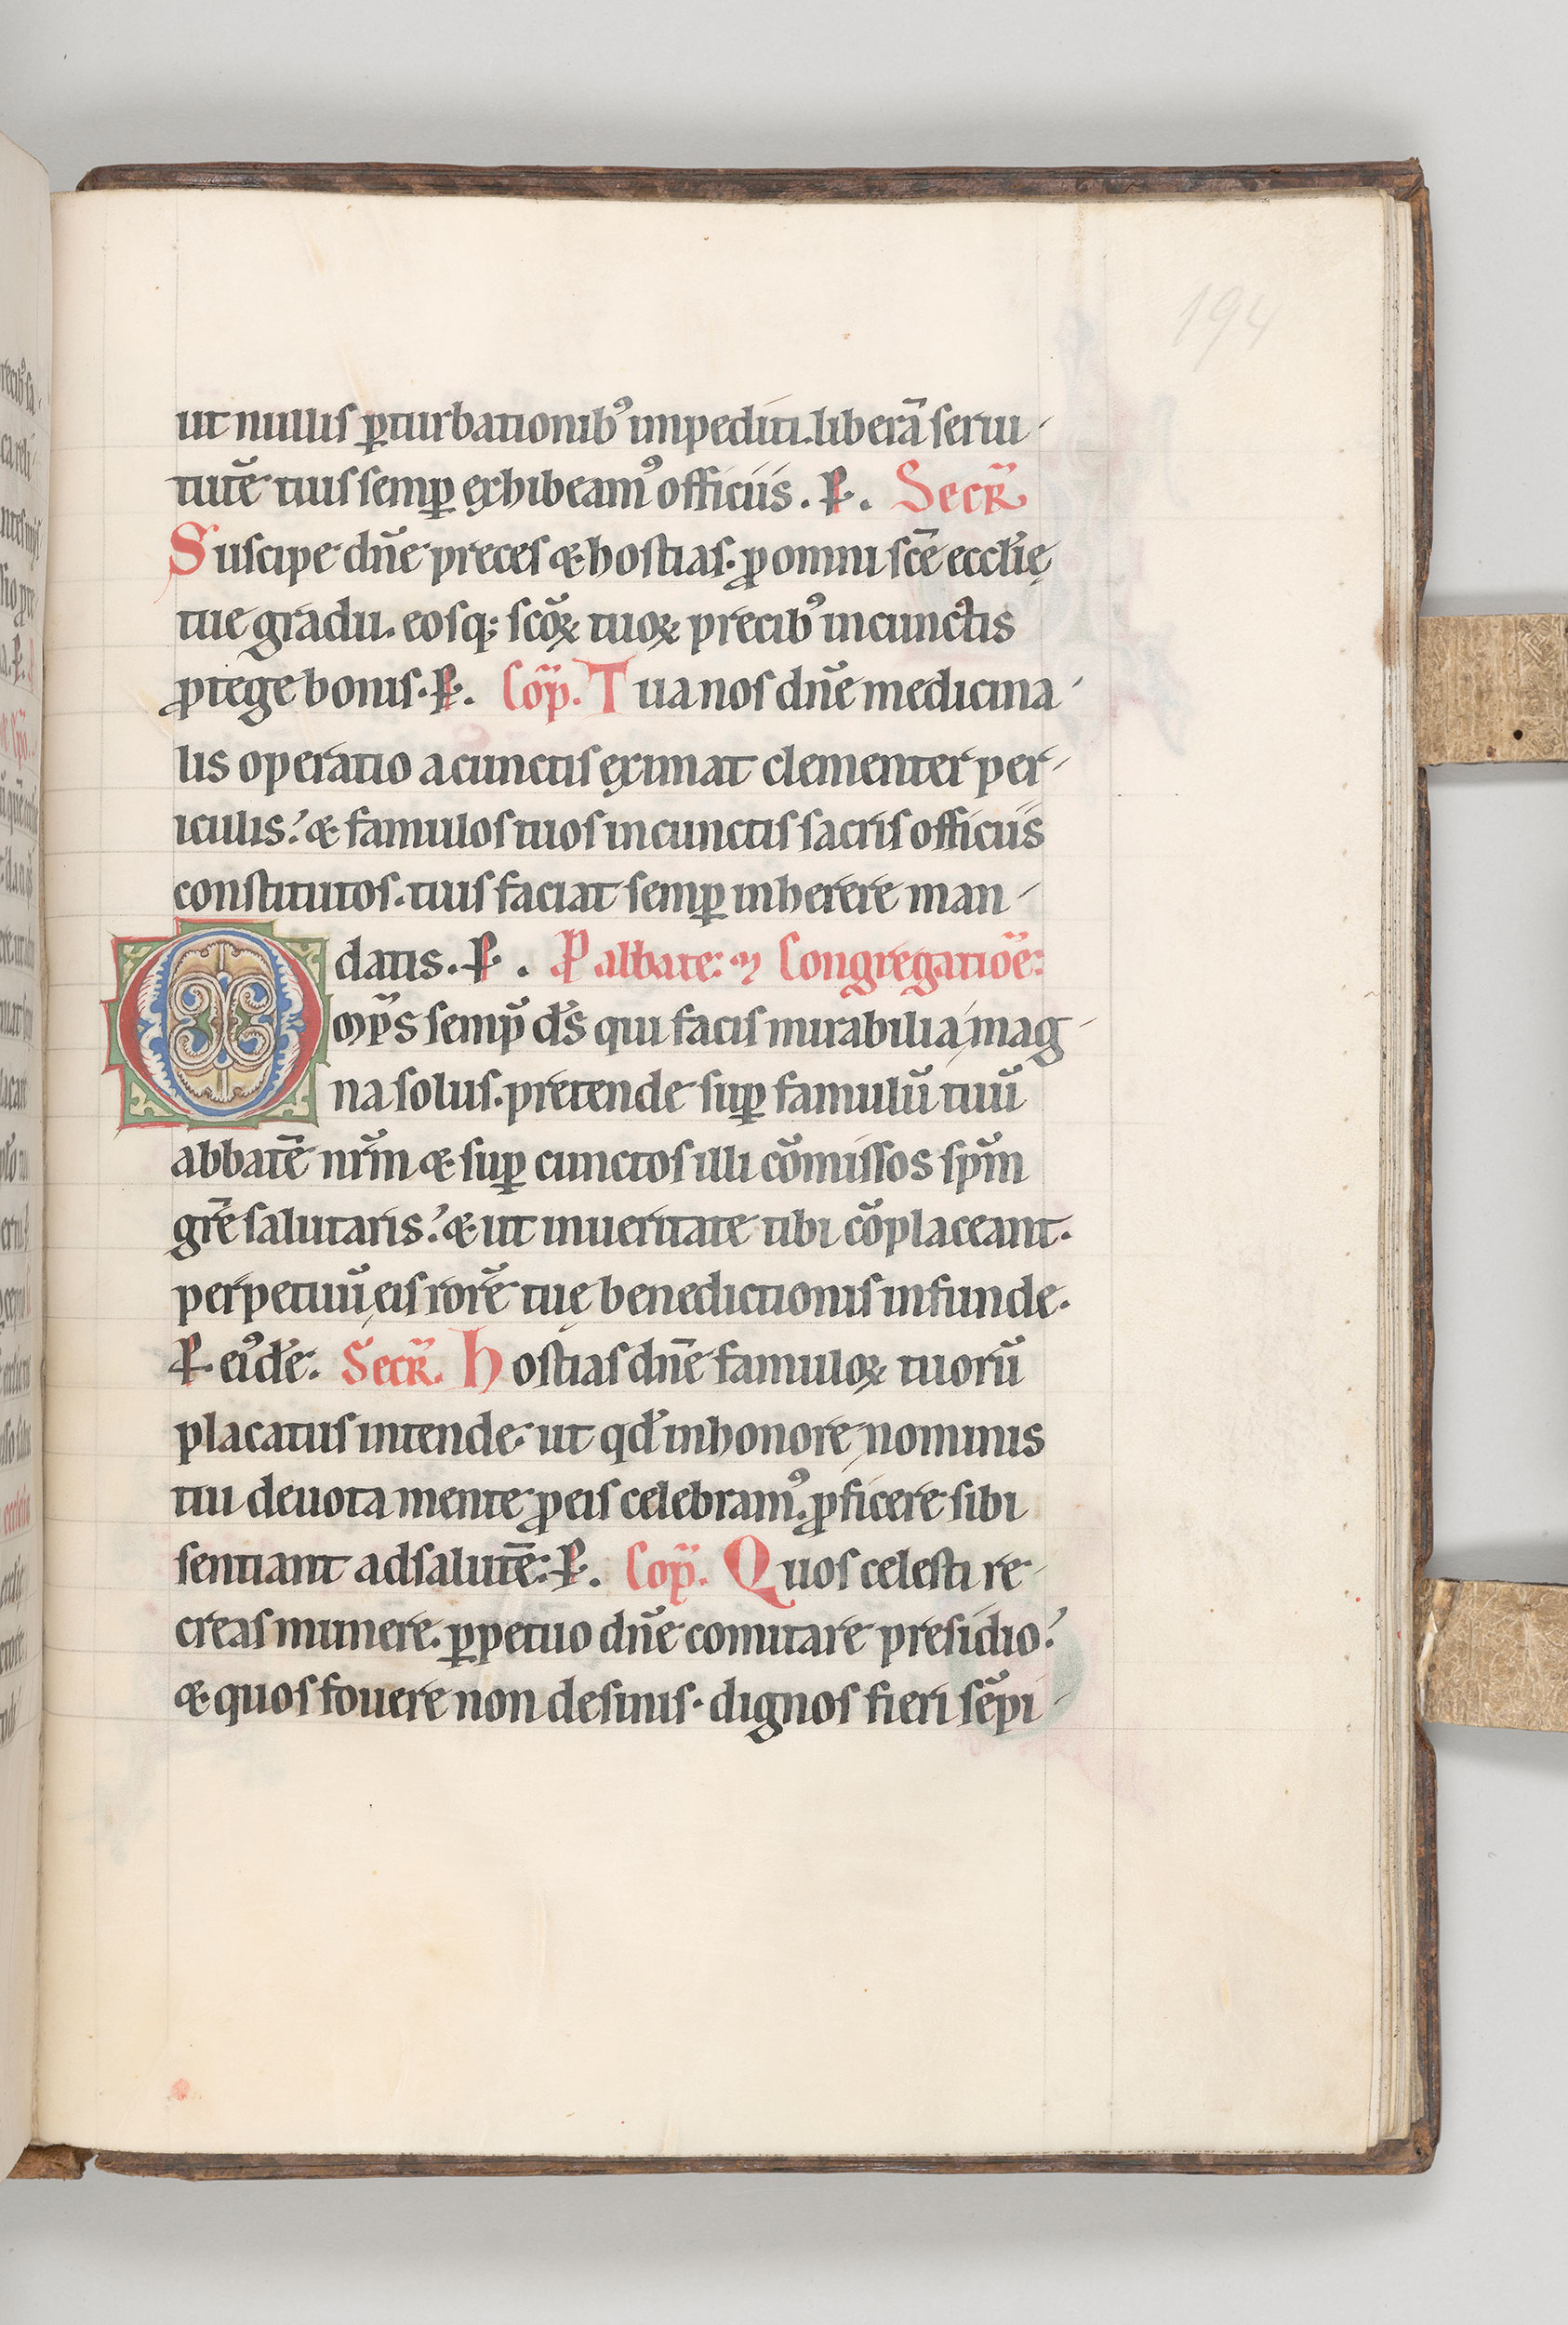 194
ut nullis ꝑturbationibꝰ impediti. liberā serui-
tutē tuis semꝑ exhibeamꝰ officiis. P. Secr̄
Suscipe dn̄e preces & hostias. ꝓ omni scē eccl̄ię
tue gradu. eosq; scōꝝ tuoꝝ precibꝰ in cunctis
ꝓtege bonis. P. Cōp. Tua nos dn̄e medicina-
lis operatio a cunctis eximat clementer per-
iculis? & famulos tuos in cunctis sacris officiis
constitutos. tuis faciat semꝑ inherere man-
datis. P. P abbate: ⁊ Congregatiōe:
Omp̄s semp̄ ds̄ qui facis mirabilia mag-
na solus. pretende suꝑ famulū tuū
abbatē nr̄m & suꝑ cunctos illi cōmissos sp̄m
gr̄e salutaris? & ut in ueritate tibi cōplaceant.
perpetuū eis rorē tuę benedictionis infunde.
P. eiꝰdē. Secr̄. Hostias dn̄e famuloꝝ tuorū
placatus intende. ut qd̄ in honore nominis
tui deuota mente ꝓ eis celebramꝰ. ꝓficere sibi
sentiant ad salutē. P. Cōp. Quos celesti re-
creas munere. ꝑpetuo dn̄e comitare presidio?
& quos fouere non desinis. dignos fieri sēpi-